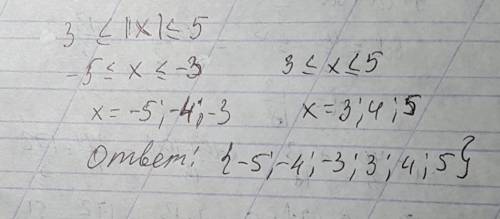 3 ≤ |x| ≤ 5
-5 ≤ x ≤ -3 3 ≤ x ≤ 5
x = -5; -4; -3 x = 3; 4; 5
Ответ: {-5; -4; -3; 3; 4; 5}